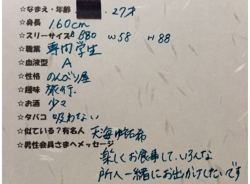 ☆なまえ・年齢 27才
☆身長 160cm
☆スリーサイズ B80 W58 H88
☆職業 専門学生
☆血液型 A
☆性格 のんびり屋
☆趣味 旅行.
☆お酒 少々
☆タバコ 吸わない
☆似ている?有名人 天海祐希
☆男性会員さまへメッセージ
楽しくお食事して、いろんな
所へ一緒にお出かけしたいです